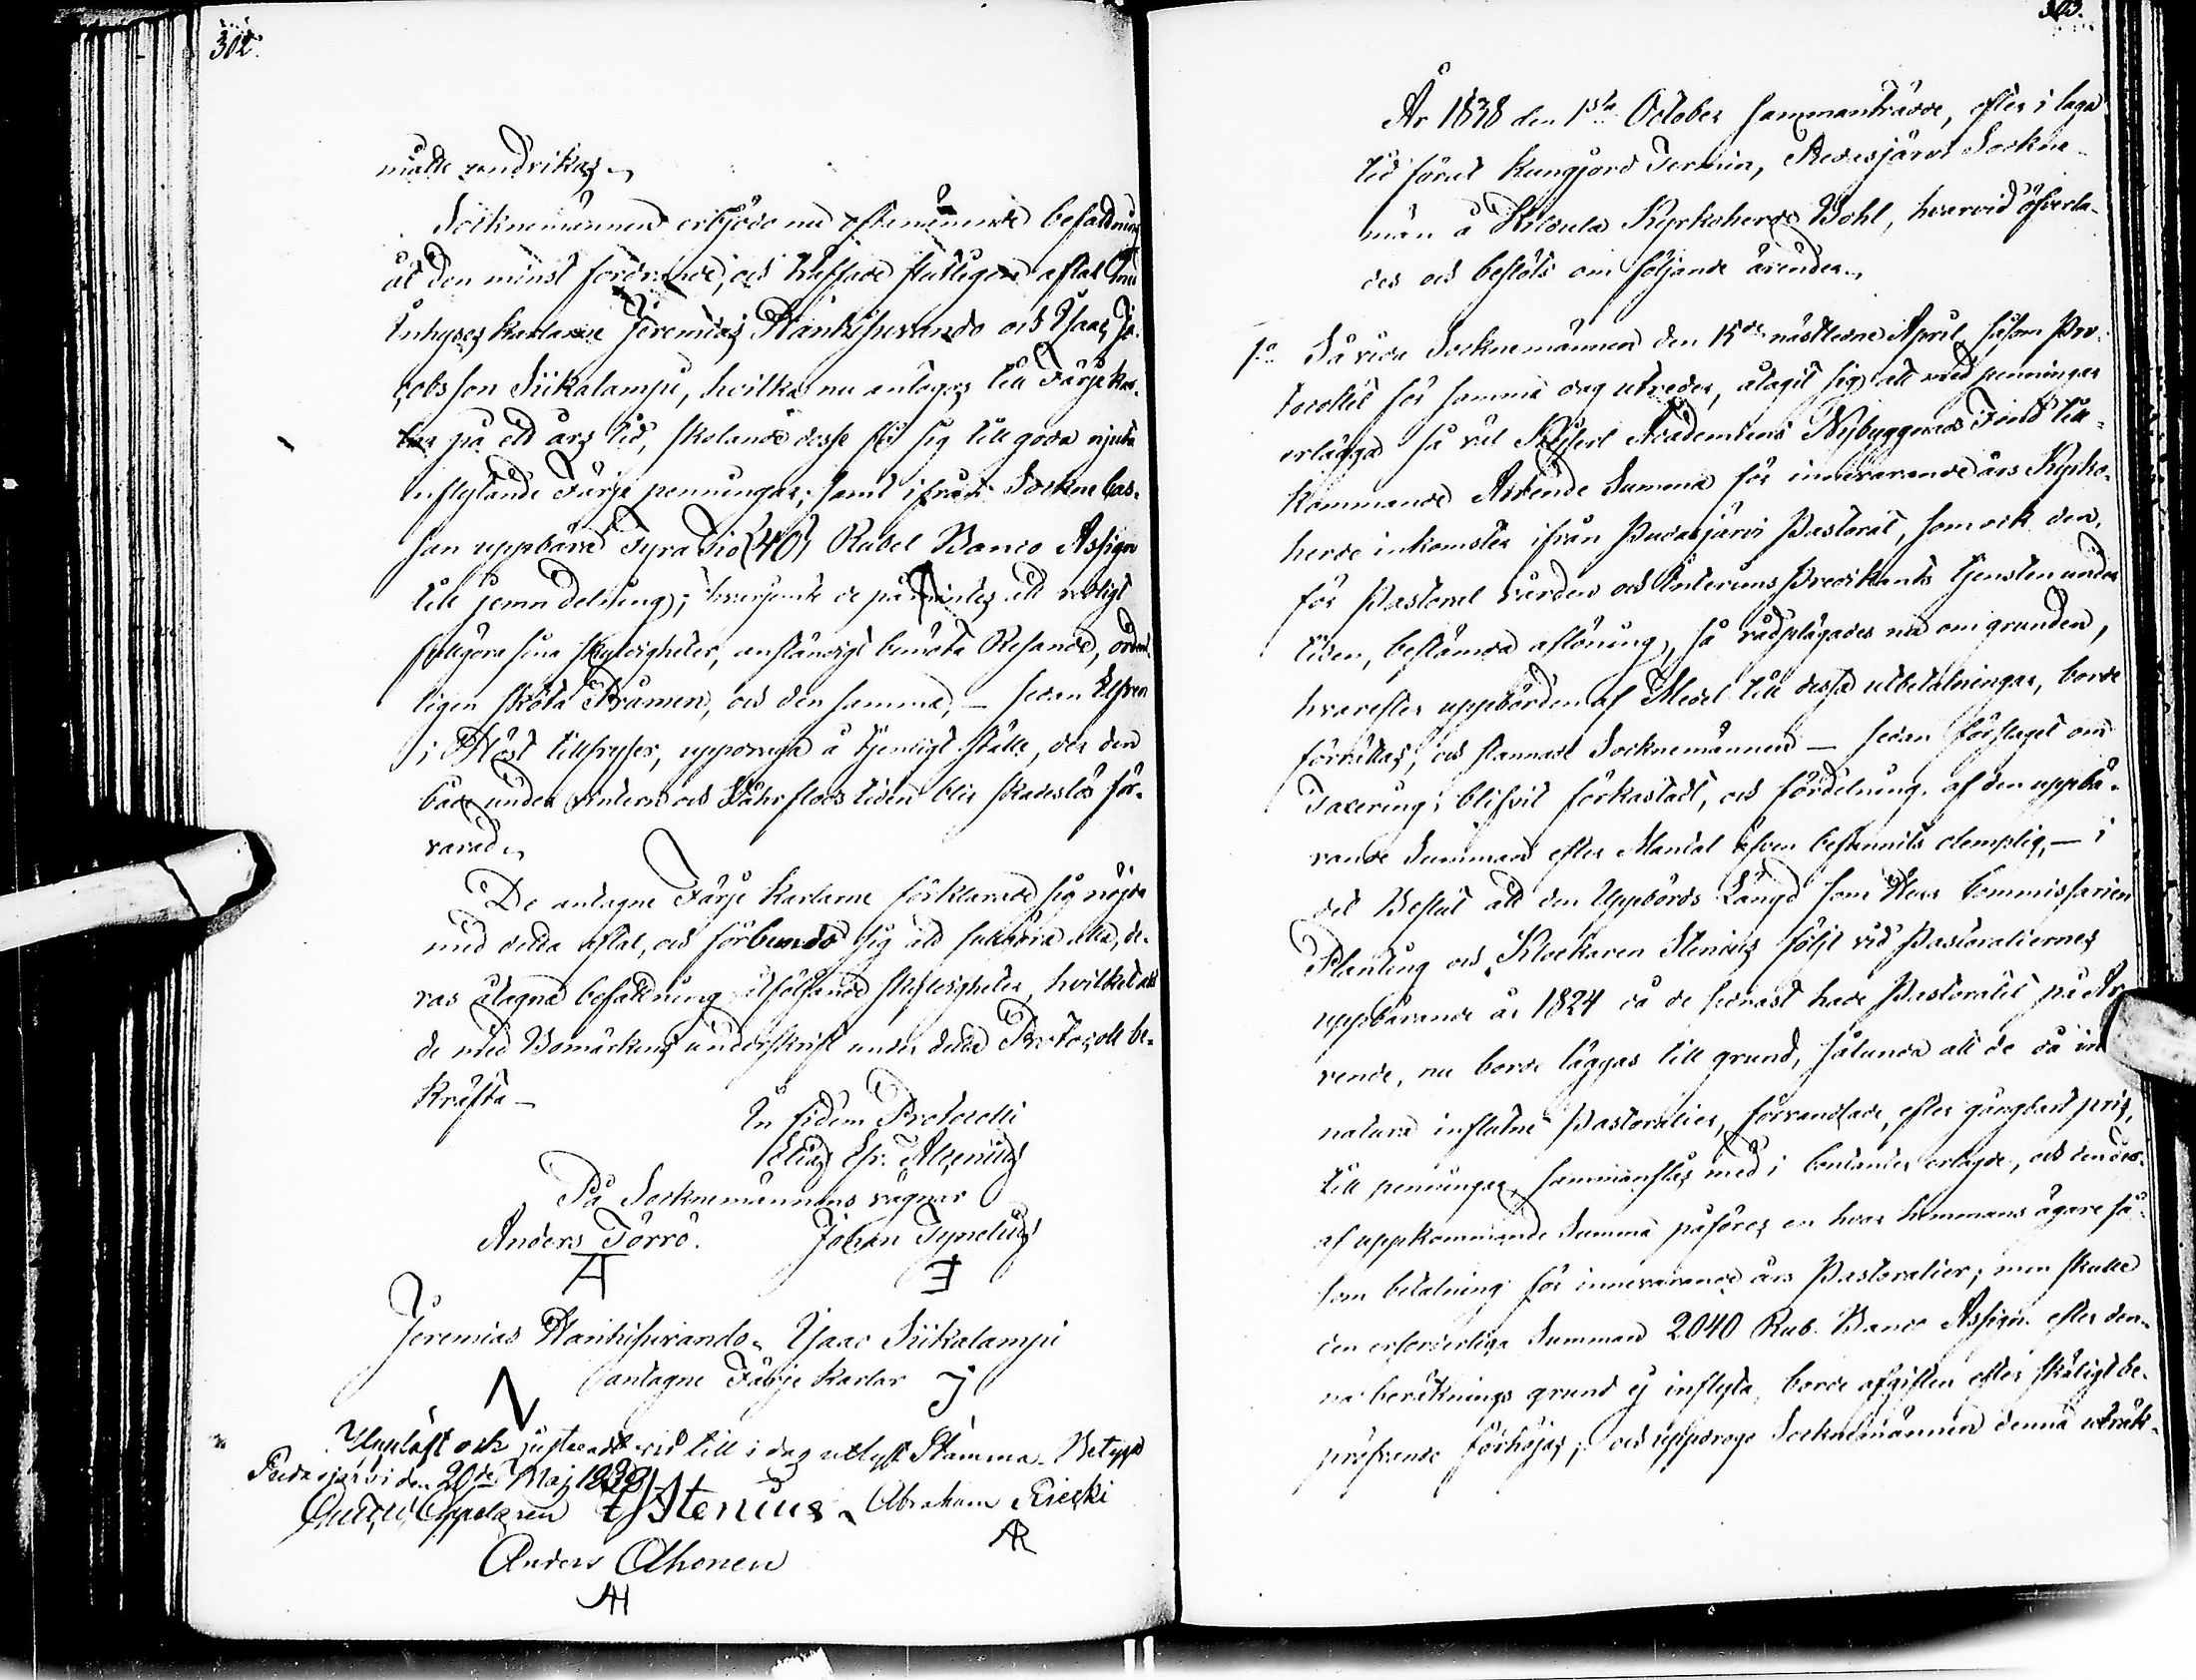 302.
måtte undvikas.
Socknemännen erbjödo nu oftanämnde befattning
åt den minst fordrande, och träffade slutligen aftal med
Inhyses karlarne Jeremias Hankisuvando och Isaac Ja-
cobsson Siikalampi, hvilka nu antagas till Färje kar-
lar på ett års tid, skolande desse få sig till godo njuta
inflytande Färje penningar, samt ifrån Sockne Cas-
san uppbära Fyratio (40) Rubel Banco Assign
till jemn delning; hvarjemte de påmintes att redligt
fullgöra sina skyldigheter, anständigt bemöta Resande, ordent-
ligen sköta Pråmen, och den samma, — sedan Elfven
i Höst tillfryser, uppdraga å tjenligt ställe, der den
både under vintern och Vårflods tiden blir skadeslös för-
varad.
De antagne Färje karlarne förklarade sig nöjde
med detta aftal, och förbundo sig att fullgöra alla, de-
ras åtagna befattning åtföljande skyldigheter, hvilket allt
de med Bomärkens underskrift under detta Protocoll be-
kräfta —
In fidem Protocolli
Elias Efr. Alcenius
På Socknemännens vägnar
Anders Törrö. Johan Tynelius
Jeremias Hankisuvando. Isaac Siikalampi
antagne Färje karlar
Uppläst och justeradt vid till i dag utlyst Stämma. Betygar
Pudasjärvi den 20de Maj 1838
Gustaf Appelgren Stenius. Abraham Riecki
AR
Anders Ahonen
AH
303.
År 1838 den 1sta October sammanträdde, efter i laga
tid förut kungjord Termin, Pudasjärvi Sockne-
män å Hilvula Kyrkoherde Bohl, hvarvid öfverla-
des och beslöts om följande ärenden.
1o Så vida Socknemännen den 15de nästledne April, såsom Pro-
tocollet för samma dag utreder, åtagit sig att med penningar
erlägga så väl Kejserl Academiens Nybyggnads Fond till-
kommande Arrende Summa för innevarande års Kyrko-
herde inkomster ifrån Pudasjärvi Pastorat, som ock den,
för Pastorat vården och Interims Predikants tjensten under
tiden, bestämda aflöning, så rådplägades nu om grunden,
hvarefter uppbörden af Medel till dessa utbetalningar, borde
förrättas, och stannade Socknemännen — sedan förslaget om
Taxering, blifvit förkastadt, och fördelning af den uppbä-
rande Summan efter Mantal äfven befunnits olemplig, — i
det Beslut att den Uppbörds Längd som Herr Commissarien
Planting och Klockaren Stenius följt vid Pastoraliernes
uppbärande år 1824 då de senast hade Pastoratet på Ar-
rende, nu borde läggas till grund, sålunda att de då in
natura influtne Pastoralier, förvandlade, efter gångbart pris,
till penningar, sammanslås med i Contanter erlagde, och den der-
af uppkommande Summa påföres en hvar hemmans ägare så-
som betalning för innevarande års Pastoralier; men skulle
den erforderliga Summan 2040 Rub. Banco Assign. efter den-
na beräknings grund ej inflyta, borde afgiften efter skäligt be-
pröfvande förhöjas; och uppdrogo Socknemännen denna uträk-